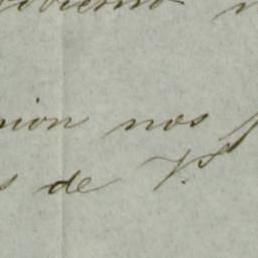 obierno
nion nos
s de V.s